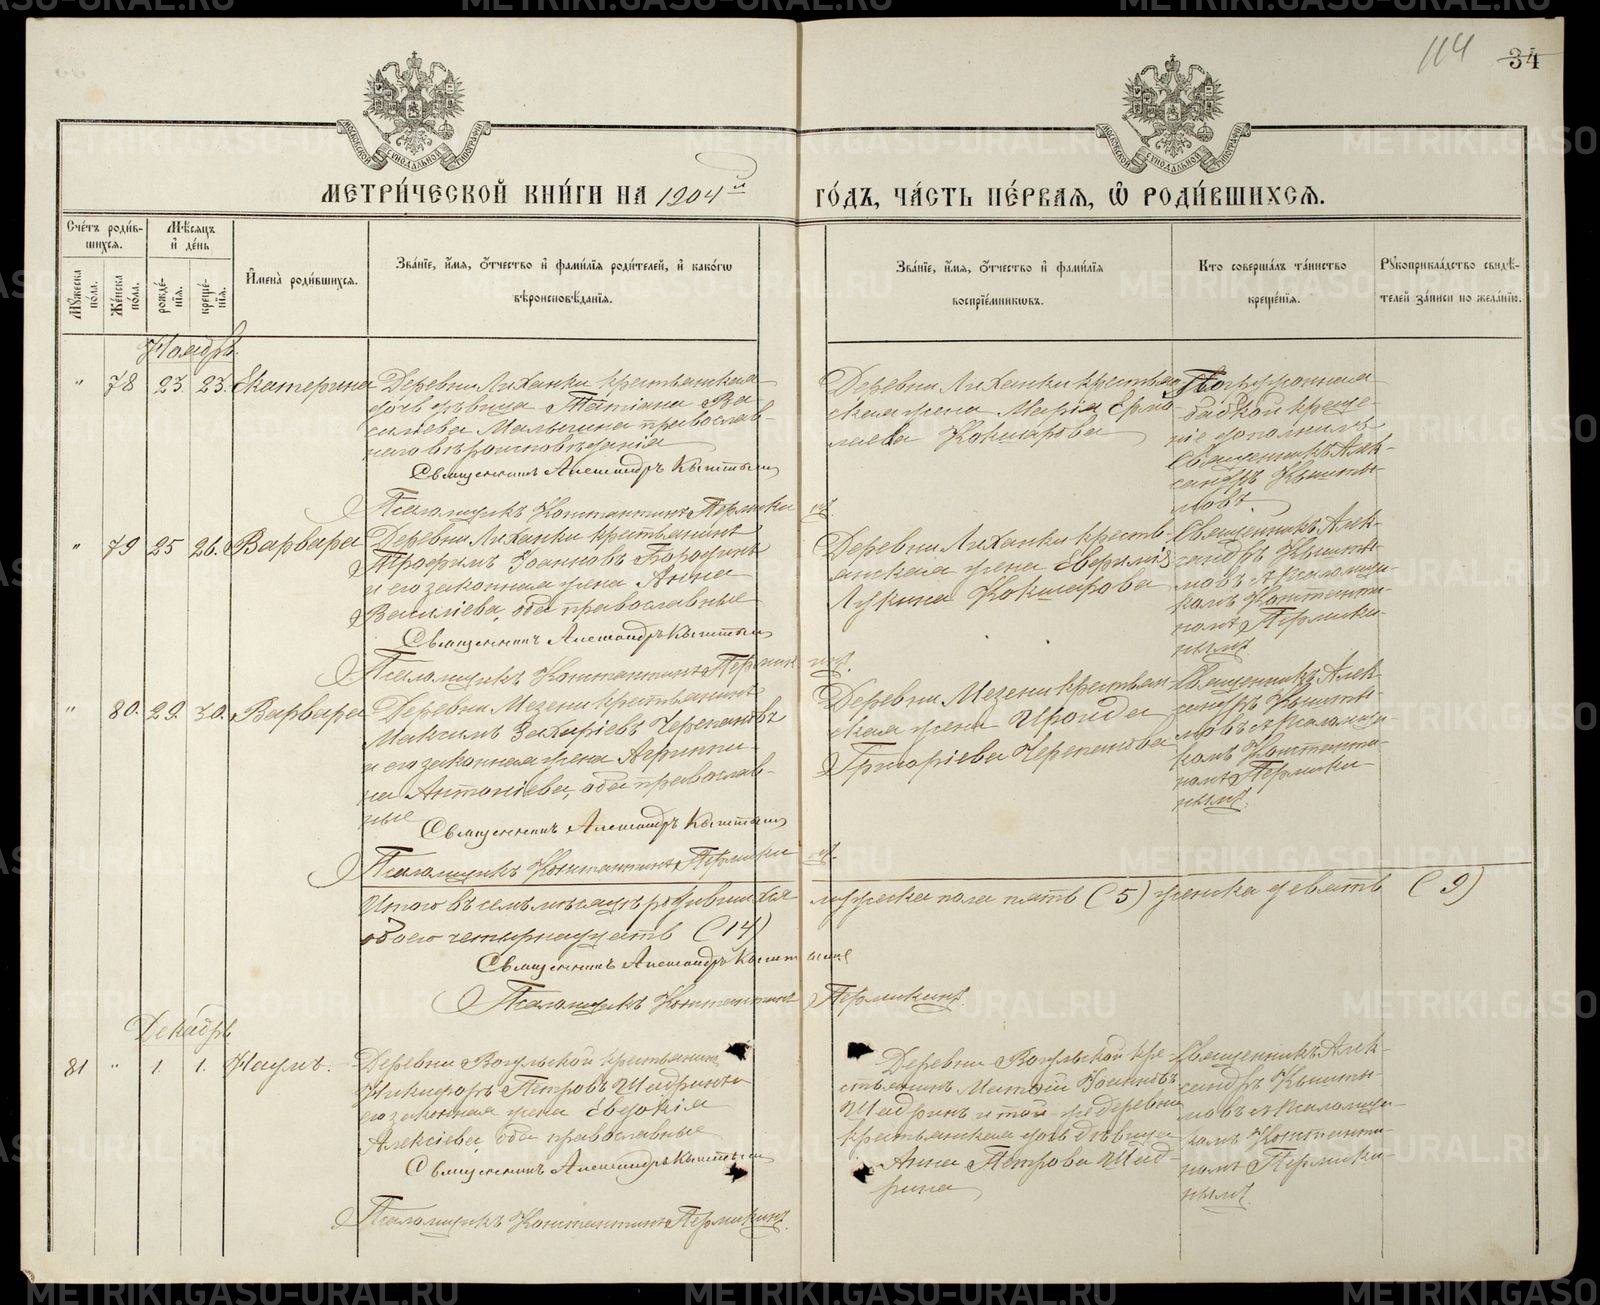 114 34
МЕТРИ́ЧЕСКОЙ КНИ́ГИ НА 1904й ГО́ДЪ, ЧА́СТЬ ПЕ́РВАЯ, Ѿ РОДИ́ВШИХСЯ.
Сче́тъ роди́в-
шихся.
Му́жеска по́ла.
Же́нска по́ла.
Мѣ́сяцъ
и де́нь
рожде́-
нія.
креще́-
нія.
Имена̀ роди́вшихся.
Зва́ніе, и́мя, о́тчество и фами́лія роди́телей, и како́гѡ
вѣроисповѣ́данія.
Зва́ніе, и́мя, о́тчество и фами́лія
воспріе́мниковъ.
Кто соверша́лъ та́инство
креще́нія.
Рукоприкла́дство свидѣ́-
телей за́писи по жела́нію.
Ноябрь.
" 78 23 23. Екатерина
Деревни Луханки крестьянская
дочь дѣвица Татіана Ва
сильева Малыгина православ-
наго вѣроисповѣданія
Священникъ Александръ Кыштымовъ
Псаломщикъ Константинъ Пермикинъ.
Деревни Луханки крестьян
ская жена Марія Ермо-
лаева Кокшарова
Погруженная
бабкой креще-
ніе дополнилъ
Священникъ Алек-
сандръ Кышты-
мовъ.
" 79 25 26. Варвара
Деревни Луханки крестьянинъ
Трофимъ Іоанновъ Бородинъ
и его законная жена Анна
Васильева, оба православные
Священникъ Александръ Кыштымовъ
Псаломщикъ Константинъ Пермикинъ.
Деревни Луханки кресть-
янская жена Евфимія
Лукина Кокшарова
Священникъ Алек-
сандръ Кышты-
мовъ с Псаломщи-
комъ Константи-
номъ Пермики-
нымъ
" 80. 29. 30. Варвара
Деревни Мезени крестьянинъ
Максимъ Захаріевъ Черепановъ
и его законная жена Агриппи-
на Антоніева, оба православ-
ные
Священникъ Александръ Кыштымовъ
Псаломщикъ Константинъ Пермикинъ.
Деревни Мезени крестьян
ская жена Ираида
Григоріева Черепанова
Священникъ Алек
сандръ Кышты-
мовъ с Псаломщи-
комъ Константи-
номъ Пермики-
нымъ.
Итого въ семъ мѣсяцѣ родившихся мужеска пола пять (5) женска девять (9)
обоего четырнадцать (14)
Священникъ Александръ Кыштымовъ
Псаломщикъ Константинъ Пермикинъ.
Декабрь
81 " 1. 1. Наумъ.
Деревни Вогульской крестьянинъ
Никифоръ Петровъ Шадринъ и
его законная жена Евдокія
Алексіева, оба православные
Священникъ Александръ Кыштымовъ
Псаломщикъ Константинъ Пермикинъ.
Деревни Вогульской кре
стьянинъ Матвѣй Іоанновъ
Шадринъ и той-же деревни
крестьянская дочь дѣвица
Анна Петрова Шад-
рина
Священникъ Алек-
сандръ Кышты-
мовъ с Псаломщи-
комъ Константи-
номъ Пермики-
нымъ.
METRIKI.GASO-URAL.RU